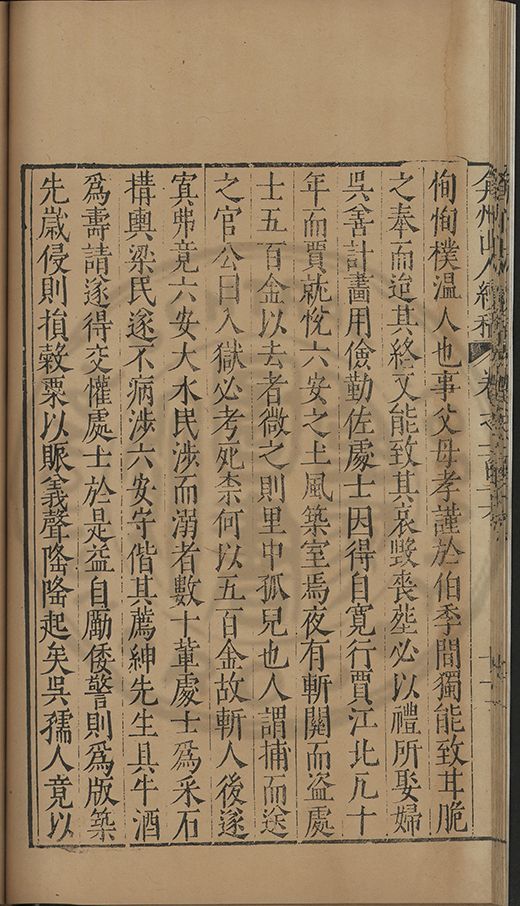 弇州山人續稿 卷之一百
恂恂樸溫人也事父母孝謹於伯季間獨能致甘脆
之奉而迨其終又能致其哀毀喪塟必以禮所娶婦
吳善計畫用儉勤佐處士因得自寬行賈江北凡十
年而賈就悅六安之土風築室焉夜有斬關而盗處
士五百金以去者微之則里中孤兒也人謂捕而送
之官公曰入獄必考死柰何以五百金故斬人後遂
寘弗竟六安大水民涉而溺者數十輩處士爲采石
構輿梁民遂不病涉六安守偕其薦紳先生具牛酒
爲壽請遂得交懽處士於是益自勵倭警則爲版築
先歲侵則捐穀粟以賑義聲隆隆起矣吳孺人竟以